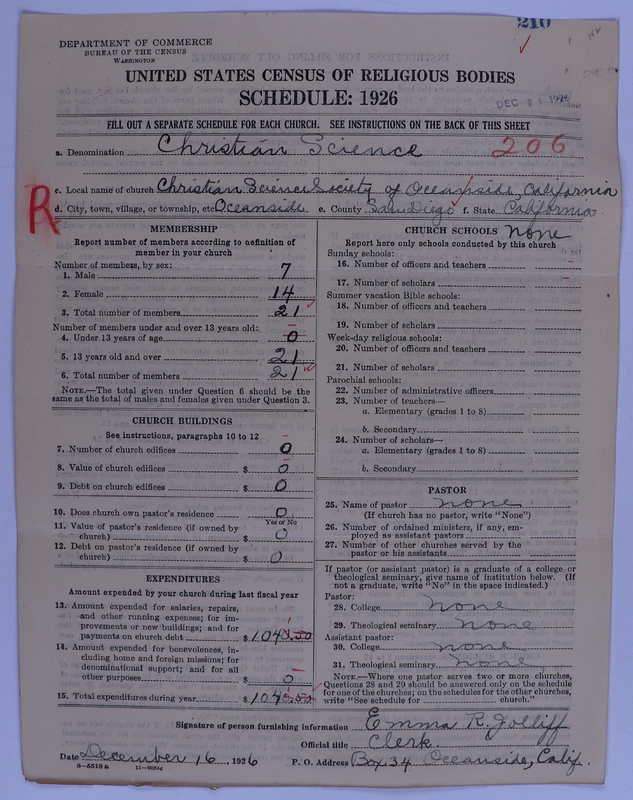 210
DEPARTMENT OF COMMERCE
BUREAU OF THE CENSUS
WASHINGTON
UNITED STATES CENSUS OF RELIGIOUS BODIES
SCHEDULE: 1926
DEC 21 1926
FILL OUT A SEPARATE SCHEDULE FOR EACH CHURCH. SEE INSTRUCTIONS ON THE BACK OF THIS SHEET
a. Denomination Christian Science 206
c. Local name of church Christian Science Society of Oceanside, California
R
d. City, town, village, or township, etc Oceanside e. County San Diego f. State California
MEMBERSHIP
Report number of members according to definition of
member in your church
Number of members, by sex:
1. Male 7
2. Female 14
3. Total number of members 21
Number of members under and over 13 years old:
4. Under 13 years of age 0
5. 13 years old and over 21
6. Total number of members 21
NOTE.—The total given under Question 6 should be
same as the total of males and females given under Question 3.
CHURCH BUILDINGS
See instructions, paragraphs 10 to 12
7. Number of church edifices 0
8. Value of church edifices $ 0
9. Debt on church edifices $ 0
10. Does church own pastor's residence 0
Yes or No
11. Value of pastor's residence (if owned by
church) $ 0
12. Debt on pastor's residence (if owned by
church) $ 0
EXPENDITURES
Amount expended by your church during last fiscal year
13. Amount expended for salaries, repairs,
and other running expenses; for im-
provements or new buildings; and for
payments on church debt $ 1043.50
14. Amount expended for benevolences, in-
cluding home and foreign missions; for
denominational support; and for all
other purposes $ 0
15. Total expenditures during year $ 1043.50
CHURCH SCHOOLS None
Report here only schools conducted by this church
Sunday schools:
16. Number of officers and teachers
17. Number of scholars
Summer vacation Bible schools:
18. Number of officers and teachers
19. Number of scholars
Week-day religious schools:
20. Number of officers and teachers
21. Number of scholars
Parochial schools:
22. Number of administrative officers
23. Number of teachers—
a. Elementary (grades 1 to 8)
b. Secondary
24. Number of scholars—
a. Elementary (grades 1 to 8)
b. Secondary
PASTOR
25. Name of pastor none
(If church has no pastor, write "None")
26. Number of ordained ministers, if any, em-
ployed as assistant pastors
27. Number of other churches served by the
pastor or his assistants
If pastor (or assistant pastor) is a graduate of a college or
theological seminary, give name of institution below. (If
not a graduate, write "No" in the space indicated.)
Pastor:
28. College none
29. Theological seminary none
Assistant pastor:
30. College none
31. Theological seminary none
NOTE.—Where one pastor serves two or more churches,
Questions 28 and 29 should be answered only on the schedule
for one of the churches; on the schedules for the other churches,
write "See schedule for church."
Signature of person furnishing information Emma R. Jolliff
Official title Clerk
Date December 16, 1926 P. O. Address Box 34 Oceanside, Calif.
8—5518a 11—9054g